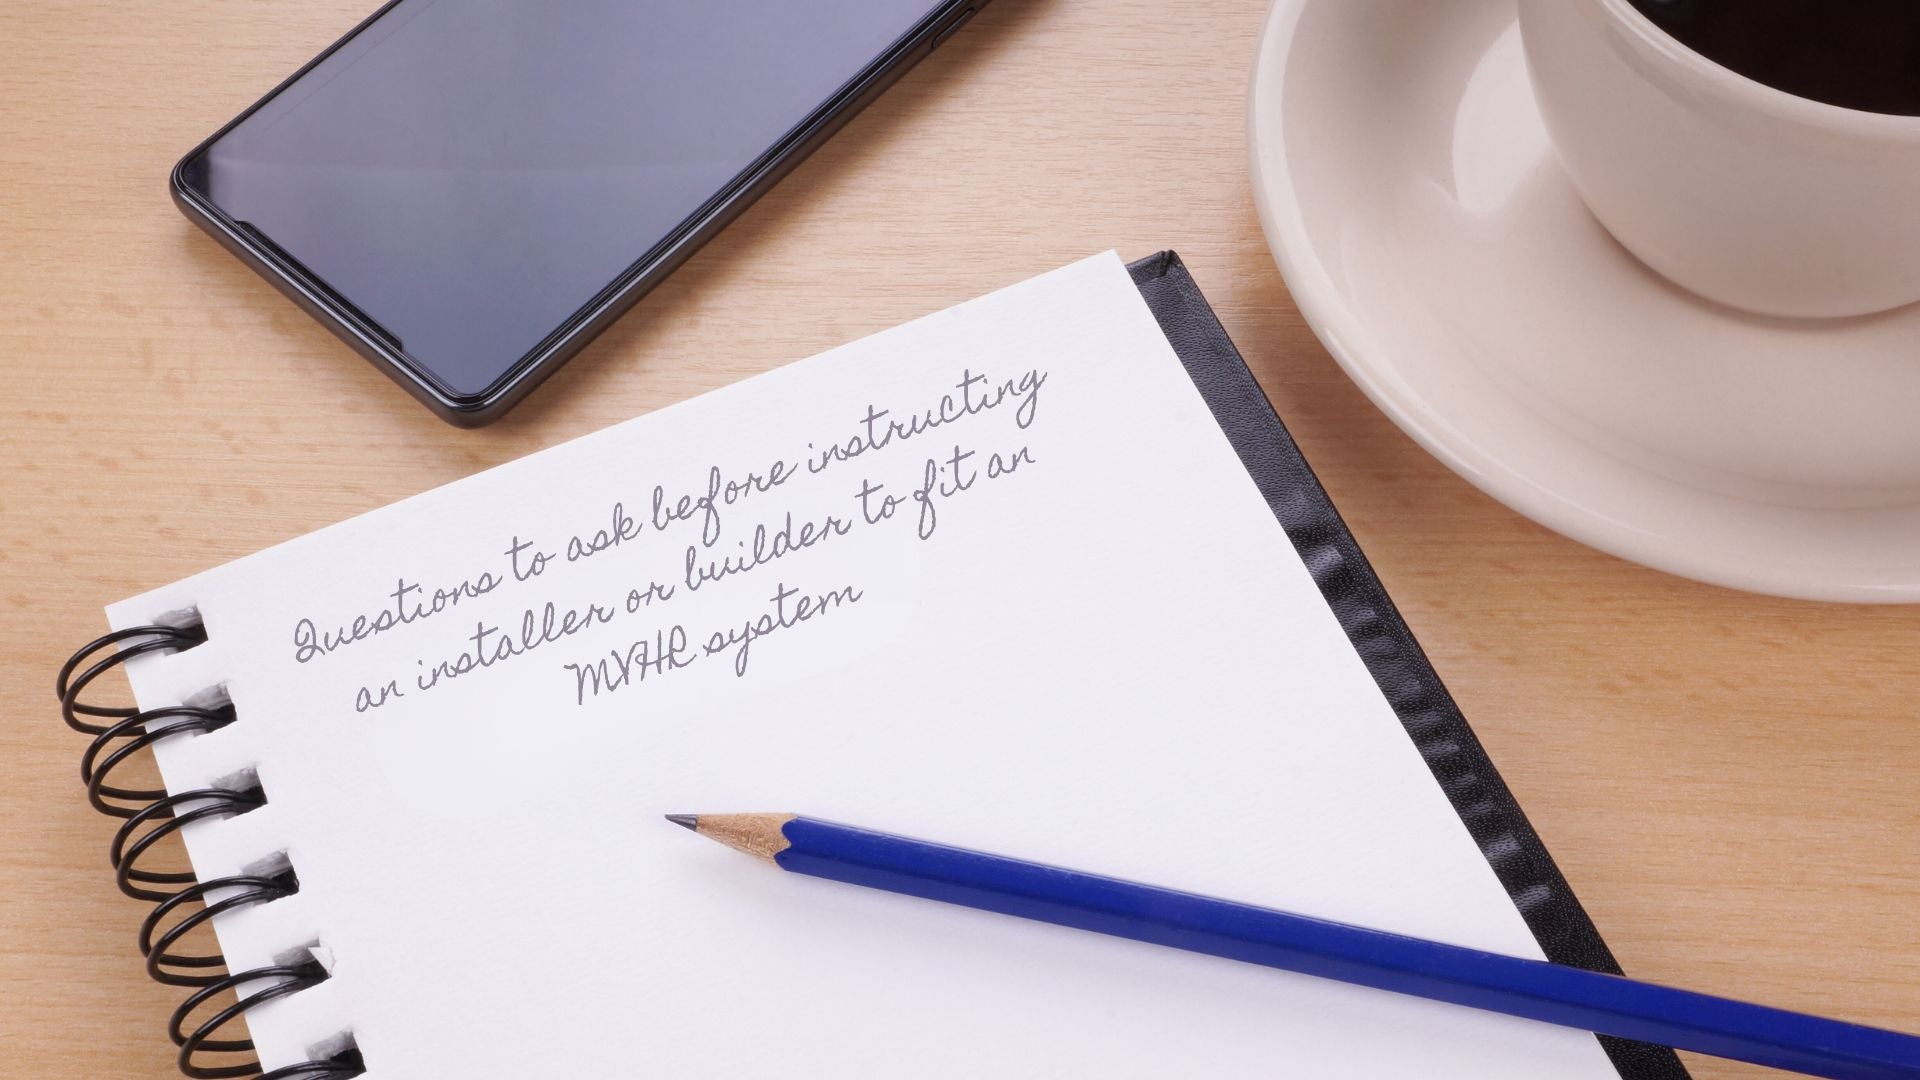 Questions to ask before instructing
an installer or builder to fit an
MVHR system